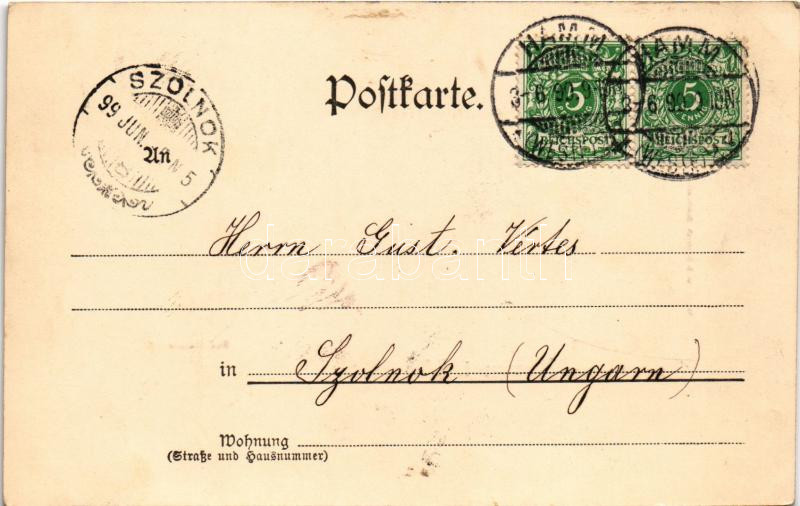 Postkarte.
An
HAMM
5
REICHSPOST
HAMM
5
REICHSPOST
SZOLNOK
99 JUN
N 5
Herrn Gust. Vértes
darabanth
in Szolnok (Ungarn)
Wohnung
(Straße und Hausnummer)